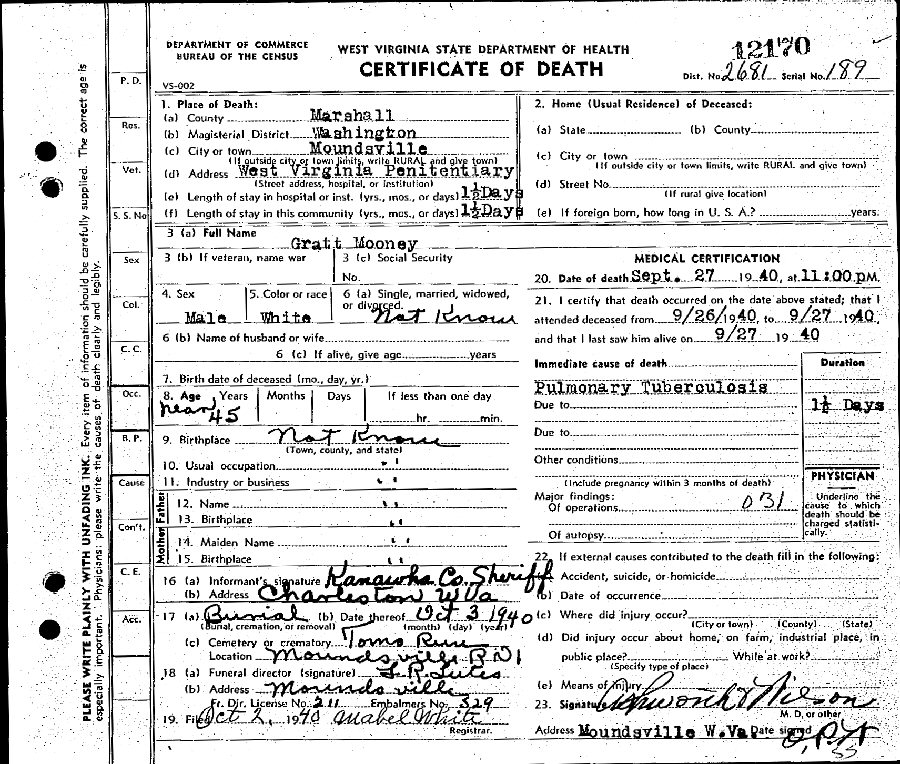 DEPARTMENT OF COMMERCE
BUREAU OF THE CENSUS
VS-002
WEST VIRGINIA STATE DEPARTMENT OF HEALTH
CERTIFICATE OF DEATH
12170
Dist. No. 2681 Serial No. 189
PLEASE WRITE PLAINLY WITH UNFADING INK. Every item of information should be carefully supplied. The correct age is
especially important. Physicians: please write the causes of death clearly and legibly.
P. D.
Res.
Vet.
S. S. No
Sex
Col.
C. C.
Occ.
B. P.
Cause
Con't.
C. E.
Acc.
1. Place of Death:
(a) County Marshall
(b) Magisterial District Washington
(c) City or town Moundsville
(If outside city or town limits, write RURAL and give town)
(d) Address West Virginia Penitentiary
(Street address, hospital, or institution)
(e) Length of stay in hospital or inst. (yrs., mos., or days) 1½ Days
(f) Length of stay in this community (yrs., mos., or days) 1½ Days
2. Home (Usual Residence) of Deceased:
(a) State (b) County
(c) City or town
(If outside city or town limits, write RURAL and give town)
(d) Street No.
(If rural give location)
(e) If foreign born, how long in U. S. A.? years.
3 (a) Full Name
Gratt Mooney
3 (b) If veteran, name war
3 (c) Social Security
No.
4. Sex
Male
5. Color or race
White
6 (a) Single, married, widowed,
or divorced.
Not Know
6 (b) Name of husband or wife
6 (c) If alive, give age years
7. Birth date of deceased (mo., day, yr.)
8. Age Years Months Days If less than one day
near 45 hr. min.
9. Birthplace Not Know
(Town, county, and state)
10. Usual occupation " "
11. Industry or business " "
Father
12. Name " "
13. Birthplace " "
Mother
14. Maiden Name " "
15. Birthplace " "
16 (a) Informant's signature Kanawha Co. Sheriff
(b) Address Charleston W Va
17 (a) Burial (b) Date thereof Oct 3 1940
(Burial, cremation, or removal) (month) (day) (year)
(c) Cemetery or crematory Toms Run
Location Moundsville R D 1
18 (a) Funeral director (signature)
(b) Address Moundsville
Fr. Dir. License No. 211 Embalmers No. 329
19. Filed Oct 2, 1940 Mabel White
Registrar.
MEDICAL CERTIFICATION
20. Date of death Sept. 27 1940, at 11:00 PM.
21. I certify that death occurred on the date above stated; that I
attended deceased from 9/26/1940 to 9/27 1940,
and that I last saw him alive on 9/27 1940
Immediate cause of death Duration
Pulmonary Tuberculosis
Due to 1½ Days
Due to
Other conditions
(Include pregnancy within 3 months of death)
Major findings:
Of operations 031
Of autopsy
PHYSICIAN
Underline the
cause to which
death should be
charged statisti-
cally.
22. If external causes contributed to the death fill in the following:
(a) Accident, suicide, or homicide
(b) Date of occurrence
(c) Where did injury occur?
(City or town) (County) (State)
(d) Did injury occur about home, on farm, industrial place, in
public place? While at work?
(Specify type of place)
(e) Means of Injury
23. Signature Wilson
M. D. or other
Address Moundsville W. Va. Date signed